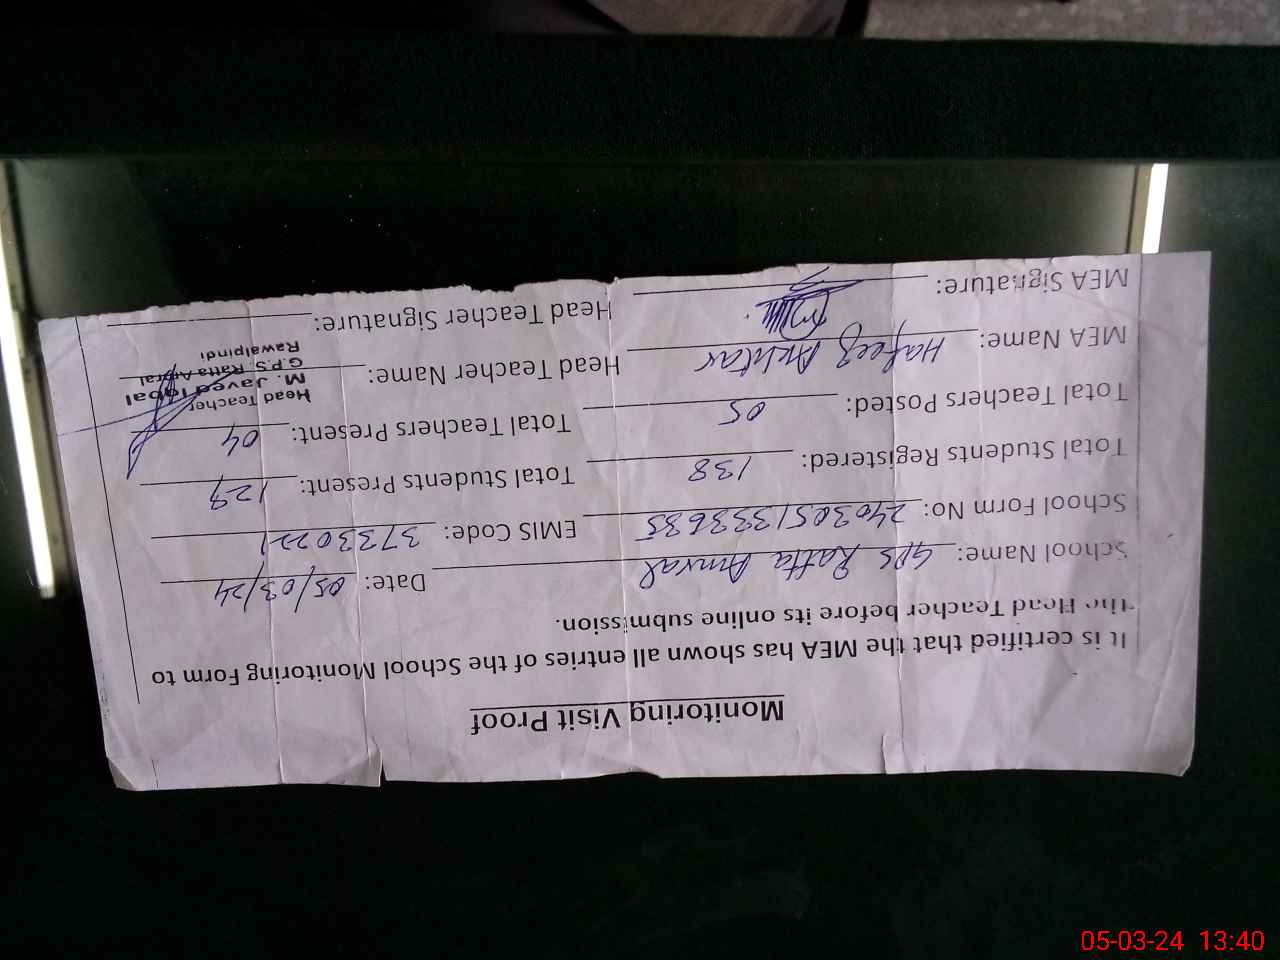 Monitoring Visit Proof
It is certified that the MEA has shown all entries of the School Monitoring Form to
the Head Teacher before its online submission.
School Name: GPS Ratta Amral Date: 05/03/24
School Form No: 2403051333635 EMIS Code: 37330221
Total Students Registered: 138 Total Students Present: 129
Total Teachers Posted: 05 Total Teachers Present: 04
MEA Name: Hafeez Akhtar Head Teacher Name: Head Teacher
M. Javed Iqbal
G.P.S Ratta Amral
Rawalpindi
MEA Signature: Head Teacher Signature:
05-03-24 13:40